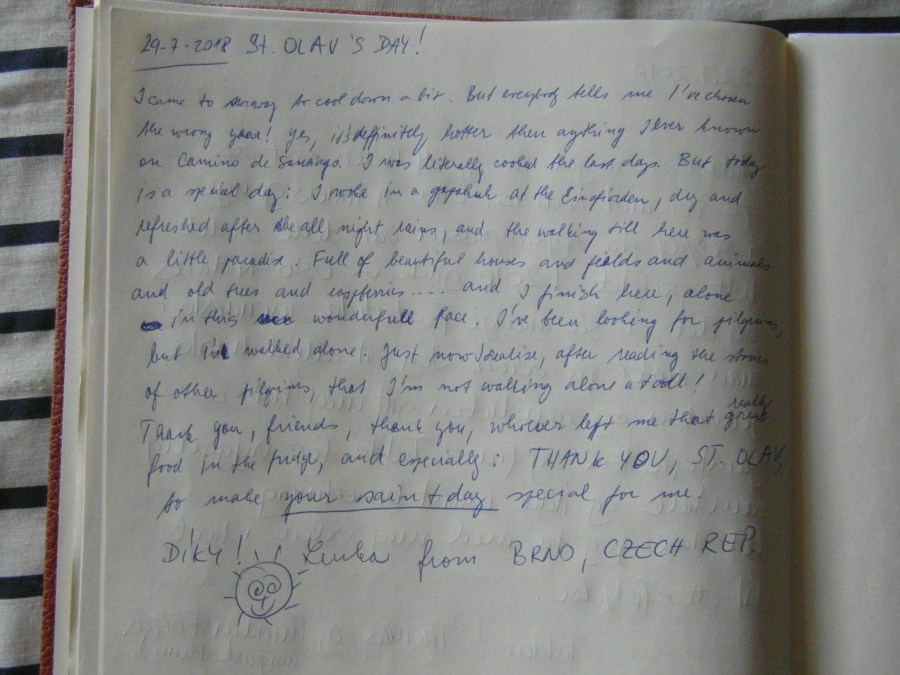 29-7-2018 St. OLAV'S DAY!
I came to norway to cool down a bit. But everybody tells me I've chosen
the wrong year! Yes, it's definitely hotter then anything I ever known
on Camino de Santiago. I was literally cooked the last days. But today
is a special day: I woke in a gapahuk at the Einafjorden, dry and
refreshed after the all night rains, and the walking till here was
a little paradise. Full of beautiful houses and fields and animals
and old trees and raspberries.... and I finish here, alone
in this wonderfull place. I've been looking for pilgrims,
but I walked alone. Just now I realize, after reading the stories
of other pilgrims, that I'm not walking alone at all!
Thank you, friends, thank you, whoever left me that really great
food in the fridge, and especially: THANK YOU, ST. OLAV,
to make your saint day special for me.
DÍKY! Lenka from BRNO, CZECH REP.